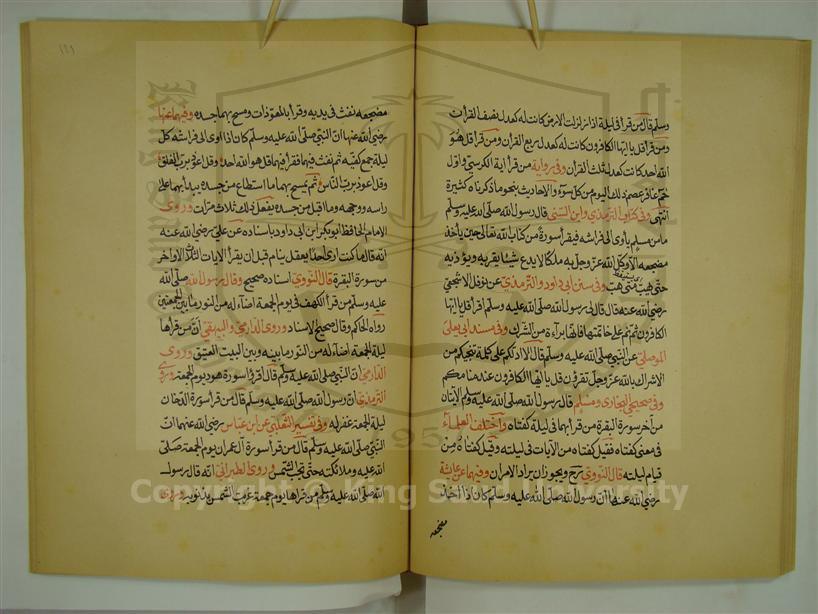 وسلم قال من قرأ في ليلة اذا زلزلت الارض كانت له كعدل نصف القرآن
ومن قرأ قل يا ايها الكافرون كانت له كعدل ربع القرآن ومن قرأ قل هو
الله احد كانت كعدل ثلث القرآن وفي رواية من قرأ آية الكرسي واول
حم غافر عصم ذلك اليوم من كل سوء والاحاديث بنحو ما ذكرناه كثيرة
انتهى وفي كتاب الترمذي وابن السني قال رسول الله صلى الله عليه وسلم
ما من مسلم يأوى الى فراشه فيقرأ سورة من كتاب الله تعالى حين يأخذ
مضجعه الا وكل الله عز وجل به ملكا لا يدع شيئا يقربه ويؤذيه
حتى يهب متى هب وفي سنن ابي داود والترمذي عن نوفل الاشجعي
رضي الله عنه قال قال لي رسول الله صلى الله عليه وسلم اقرأ قل يا ايها
الكافرون ثم نم على خاتمتها فانها براءة من الشرك وفي مسند ابي يعلى
الموصلي عن النبي صلى الله عليه وسلم قال الا ادلكم على كلمة تنجيكم من
الاشراك بالله عز وجل تقرؤن قل يا ايها الكافرون عند منامكم
وفي صحيحي البخاري ومسلم قال رسول الله صلى الله عليه وسلم الآيتان
من آخر سورة البقرة من قرأ بهما في ليلة كفتاه واختلف العلماء
في معنى كفتاه فقيل كفتاه من الآفات في ليلته وقيل كفتاه من
قيام ليلته قال النووي ويجوز ان يراد الامران وفيهما عن عائشة
رضي الله عنها ان رسول الله صلى الله عليه وسلم كان اذا اخذ
مضجعه
مضجعه نفث في يديه وقرأ بالمعوذات ومسح بهما جسده وفيهما عنها
رضي الله عنها ان النبي صلى الله عليه وسلم كان اذا اوى الى فراشه كل
ليلة جمع كفيه ثم نفث فيهما فقرأ فيهما قل هو الله احد وقل اعوذ برب الفلق
وقل اعوذ برب الناس ثم يمسح بهما ما استطاع من جسده يبدأ بهما على
راسه ووجهه وما اقبل من جسده يفعل ذلك ثلاث مرات وروى
الامام الحافظ ابو بكر ابن ابي داود باسناده عن علي رضي الله عنه
انه قال ما كنت ارى احدا يعقل ينام قبل ان يقرأ الآيات الثلاث الاواخر
من سورة البقرة قال النووي اسناده صحيح وقال رسول الله صلى الله
عليه وسلم من قرأ الكهف في يوم الجمعة اضاء له من النور ما بين الجمعتين
رواه الحاكم وقال صحيح الاسناد وروى الدارمي والبيهقي ان من قرأها
ليلة الجمعة اضاء له من النور ما بينه وبين البيت العتيق وروى
الدارمي ان النبي صلى الله عليه وسلم قال اقرؤا سورة هود يوم الجمعة وروى
الترمذي ان رسول الله صلى الله عليه وسلم قال من قرأ سورة الدخان
ليلة الجمعة غفر له وفي تفسير الثعلبي عن ابن عباس رضي الله عنهما ان
النبي صلى الله عليه وسلم قال من قرأ سورة آل عمران يوم الجمعة صلى
الله عليه وملائكته حتى تجب الشمس وروى الطبراني انه قال رسول
الله صلى الله عليه وسلم من قرأها يوم جمعة غربت الشمس بذنوبه وروى
Copyright © King Saud University